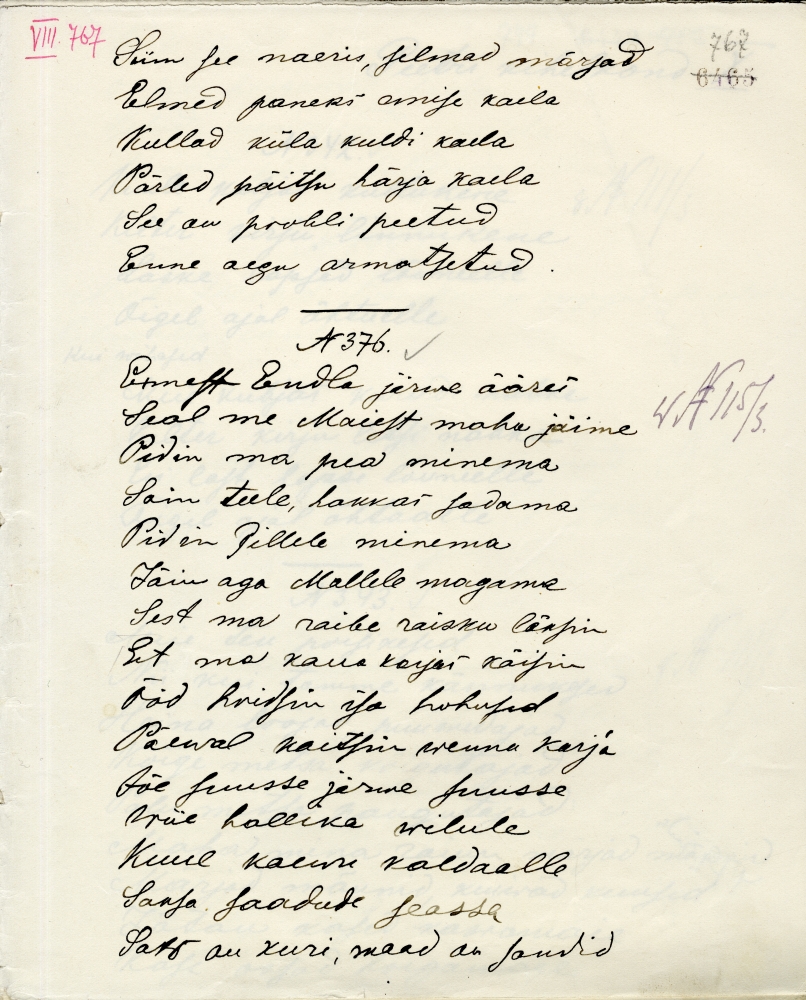 VIII. 767
767
6465
Siim see naeris, silmad märjad
Elmed paneks emise kaila
Kullad küla kuldi kaela
Pärled päitsu härja kaela
See on prohli peetud
Enne aegu armatsetud.
N 376.
Esmest Endla järwe ääres
Seal me Maiest maha jäime
Pidin ma pea minema
Sain teele, hakkas sadama
Pidin Pillele minema
Jäin aga Mallele magama
Sest ma raibe raisku läksin
Et ma kaua karjas käisin
Ööd hoidsin isa hobused
Päewal kaitsin wenna karja
Jõe suusse järwe suusse
Wiie hallika wilule
Kuue kaewu kaldaalle
Saksa saadude seassa
Sato on kuri, maad on sandid
N 115/3.